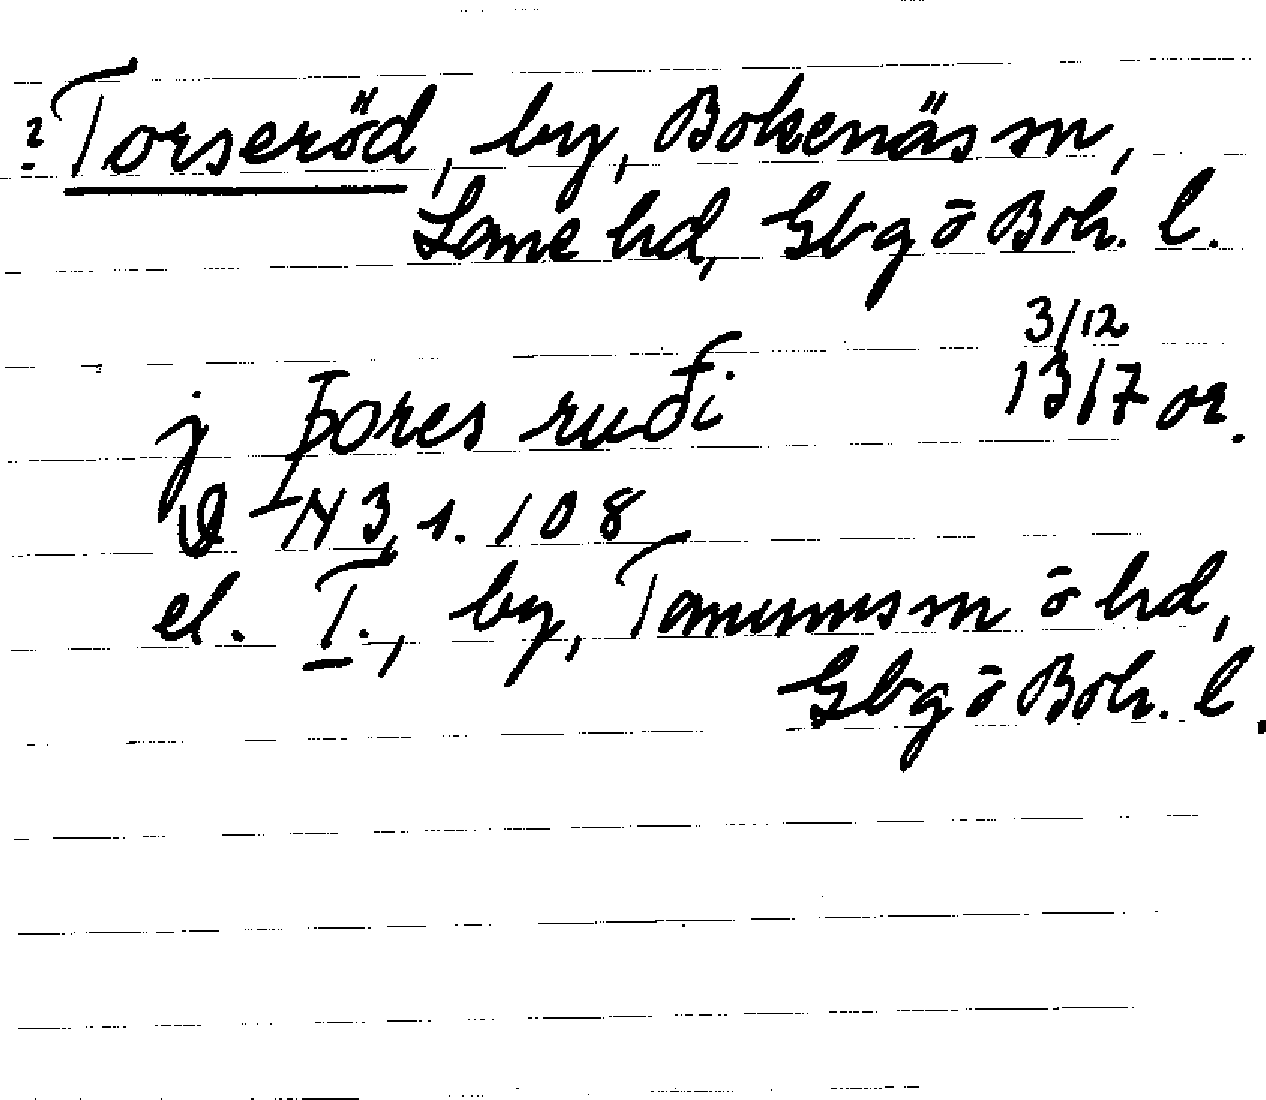 ? Torseröd, by, Bokenäs sn,
Lane hd, Gbg o Boh. l.
3/12
j Þores ruði 1317 or.
D I N 3, s. 108
el. T., by, Tanums sn o hd,
Gbg o Boh. l.